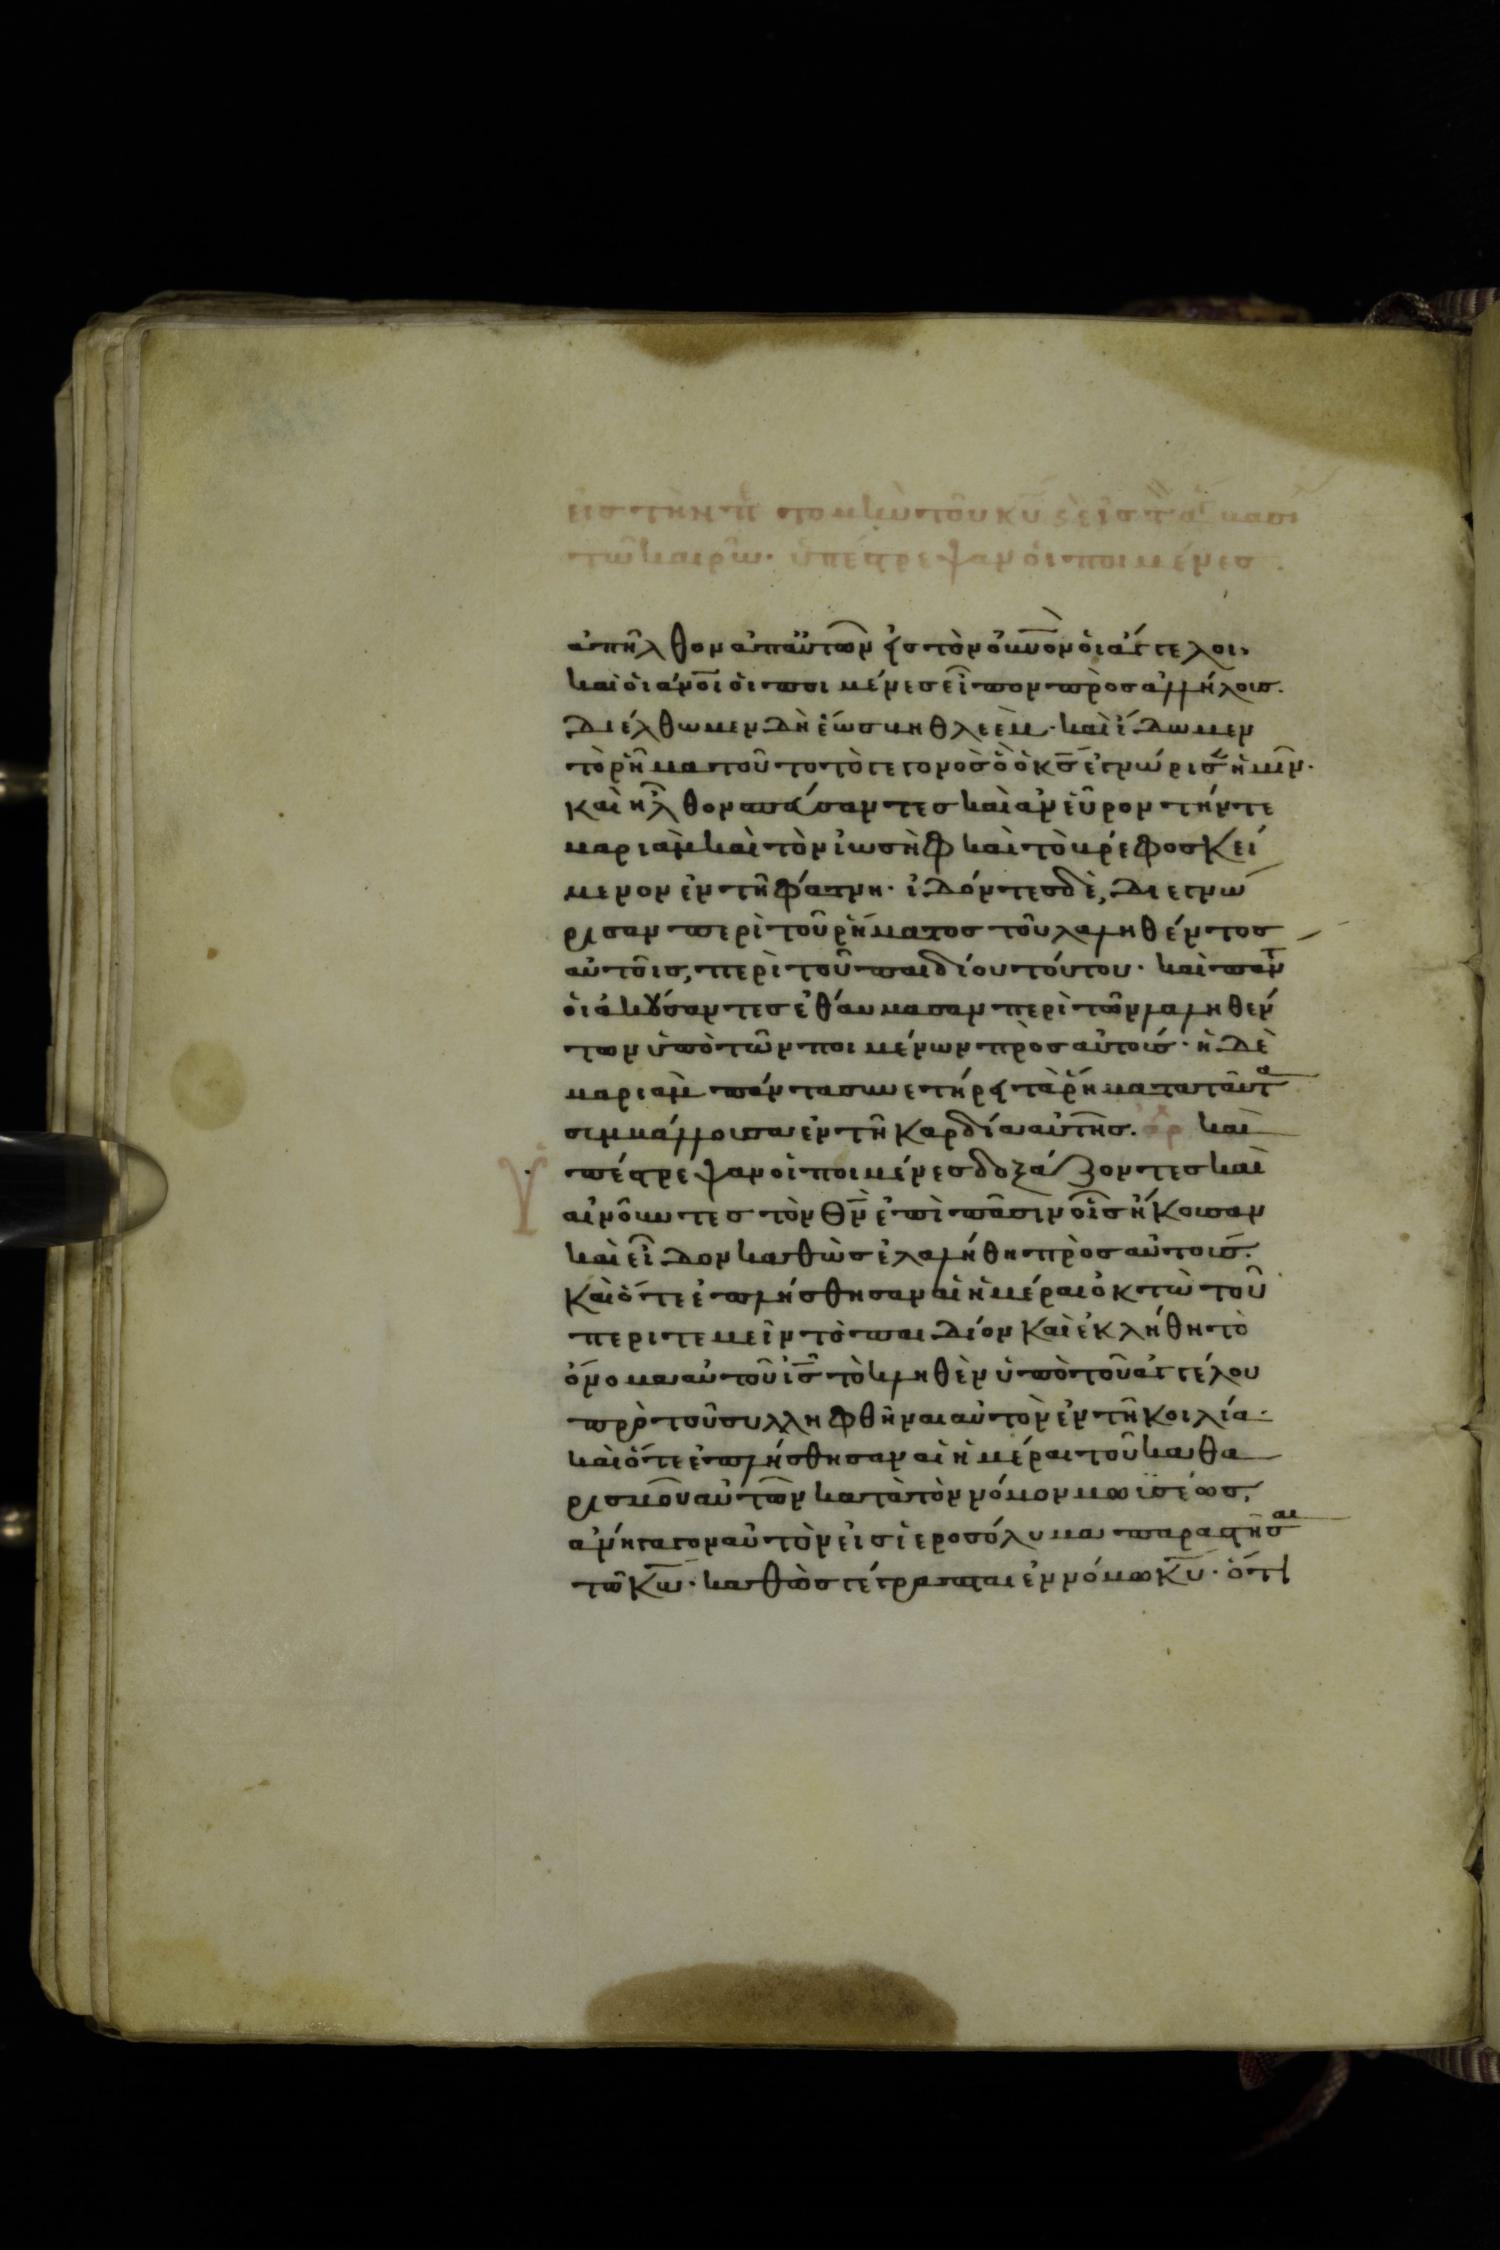 εἰς τὴν περιτομὴν τοῦ κυ
τῶ καιρῶ. ὑπέστρεψαν οἱ ποιμένες.
ἀπῆλθον ἀπ αὐτῶν εἰς τὸν οὐνὸν οἱ ἄγγελοι,
καὶ οἱ ἄνοι οἱ ποιμένες εἶπον πρὸς ἀλλήλους.
Διέλθωμεν δὴ ἕως βηθλεὲμ. καὶ ἴδωμεν
τὸ ρῆμα τοῦτο τὸ γεγονὸς ὃ ὁ κς ἐγνώρισεν ἡμῖν.
καὶ ἦλθον σπεύσαντες καὶ ἀνεῦρον τήν τε
μαριὰμ καὶ τὸν ἰωσὴφ καὶ τὸ βρέφος κεί
μενον ἐν τῆ φάτνη. ἰδόντες δὲ, διεγνώ
ρισαν περὶ τοῦ ρήματος τοῦ λαληθέντος
αὐτοῖς, περὶ τοῦ παιδίου τούτου. καὶ παντ
οἱ ἀκούσαντες ἐθάυμασαν περὶ τῶν λαληθέν
των ὑπὸ τῶν ποιμένων πρὸς αὐτούς. ἡ δὲ
μαριὰμ πάντα συνετήρει τὰ ρήματα ταῦτα
συμβάλλουσα ἐν τῆ καρδία αὐτῆς. ἀρ καὶ
Ὑπέστρεψαν οἱ ποιμένες δοξάζοντες καὶ
αἰνοῦντες τὸν θν ἐπὶ πᾶσιν οἷς ἤκουσαν
καὶ εἶδον καθὼς ἐλαλήθη πρὸς αὐτούς.
καὶ ὅτε ἐπλήσθησαν αἱ ἡμέραι ὀκτὼ τοῦ
περιτεμεῖν τὸ παιδίον καὶ ἐκλήθη τὸ
ὄνομα αὐτοῦ ις τὸ κληθὲν ὑπὸ τοῦ ἀγγέλου
πρὸ τοῦ συλληφθῆναι αὐτὸν ἐν τῆ κοιλία.
καὶ ὅτε ἐπλήσθησαν αἱ ἡμέραι τοῦ καθα
ρισμοῦ αὐτῶν κατὰ τὸν νόμον μωϊσέως,
ἀνήγαγον αὐτὸν εἰς ἱεροσόλυμα παραστῆσαι
τῶ κω. καθὼς γέγραπται ἐν νόμω κυ. ὅτι